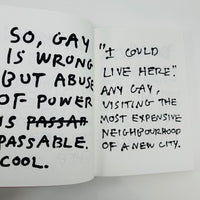 SO, GAY
IS WRONG
BUT ABUSE
OF POWER
IS PASSAB
PASSABLE.
COOL.
"I COULD
LIVE HERE."
ANY GAY,
VISITING THE
MOST EXPENSIVE
NEIGHBOURHOOD
OF A NEW CITY.